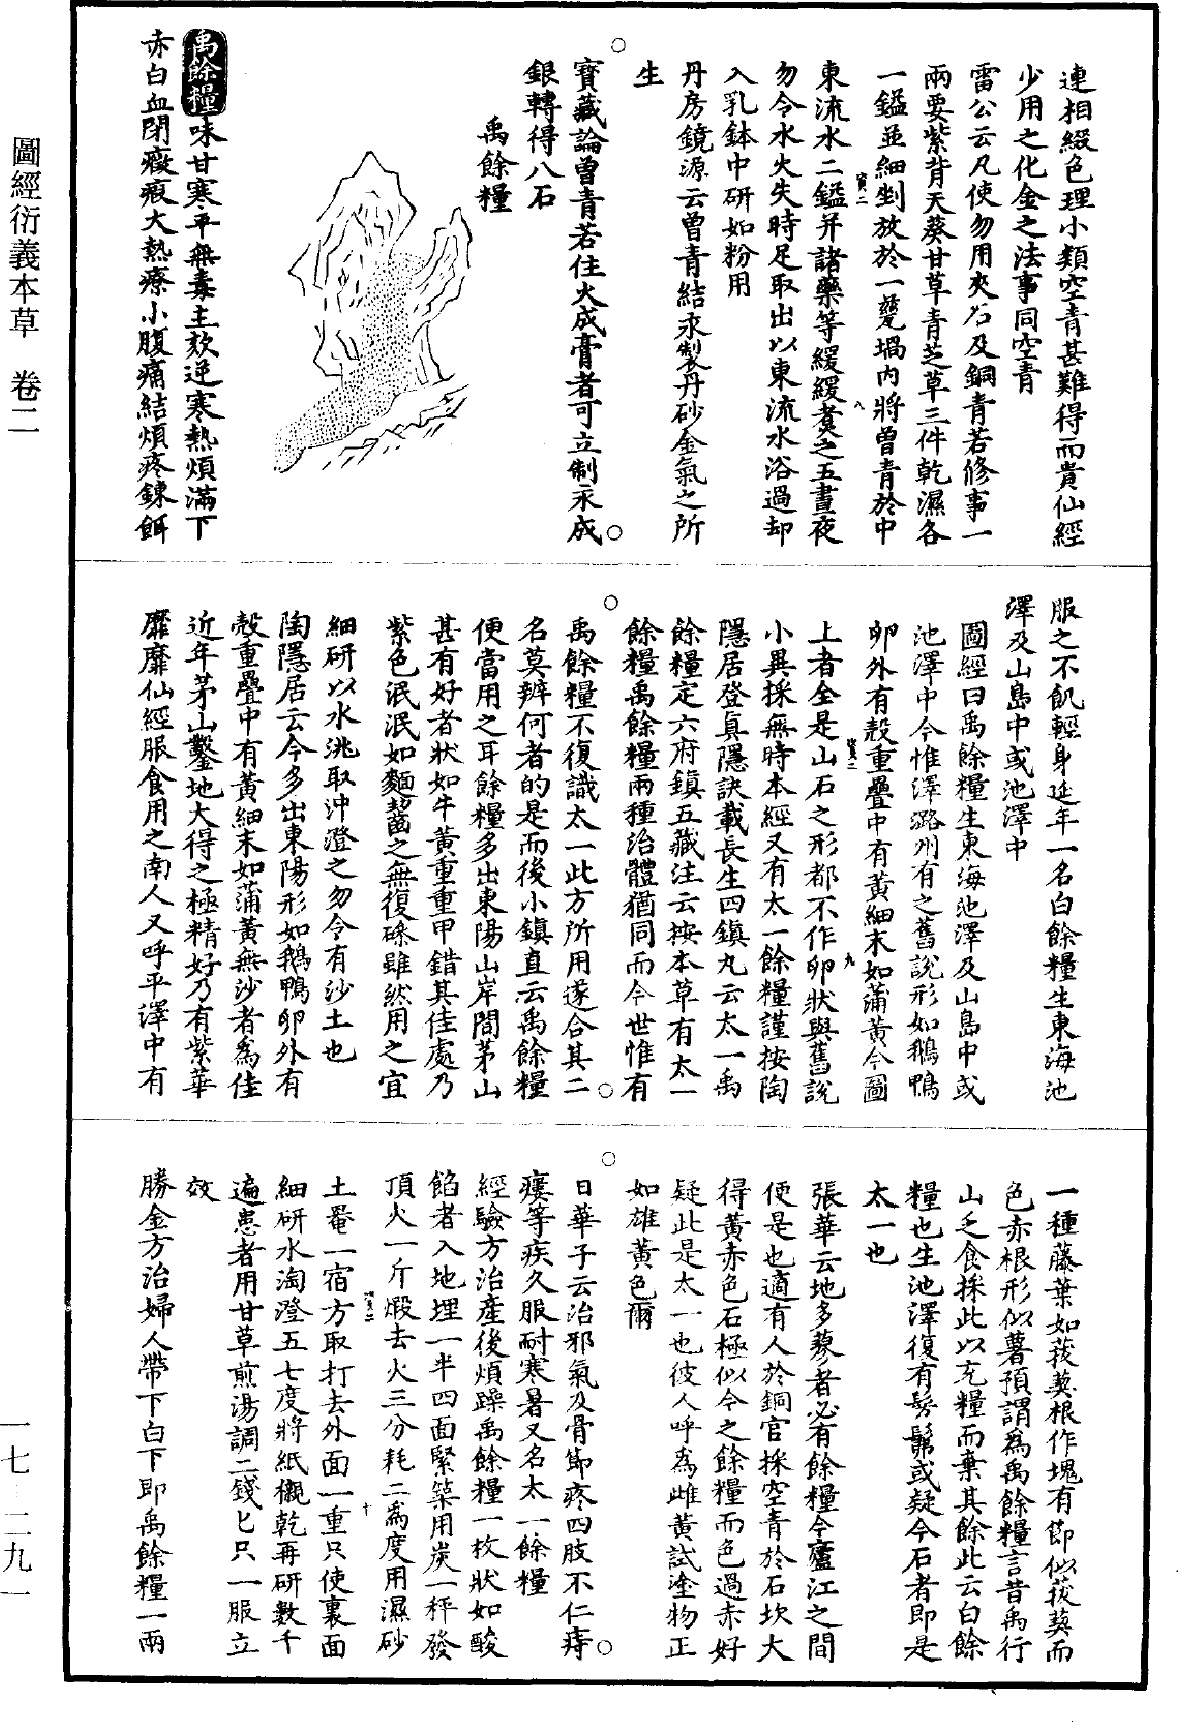 圖經衍義本草　卷二
連相綴色理小類空青甚難得而貴仙經
少用之化金之法事同空青
雷公云凡使勿用夾石及銅青若修事一
兩要紫背天葵甘草青芝草三件乾濕各
一鎰並細剉放於一瓷堝內將曾青於中
東流水二鎰并諸藥等緩緩煑之五晝夜
勿令水火失時足取出以東流水浴過却
入乳鉢中研如粉用
丹房鏡源云曾青結汞製丹砂金氣之所
生
寶藏論曾青若住火成膏者可立制汞成
銀轉得八石
禹餘糧
禹餘糧味甘寒平無毒主欬逆寒熱煩滿下
赤白血閉癥瘕大熱療小腹痛結煩疼鍊餌
服之不飢輕身延年一名白餘糧生東海池
澤及山島中或池澤中
圖經曰禹餘糧生東海池澤及山島中或
池澤中今惟澤潞州有之舊說形如鵝鴨
卵外有殼重疊中有黃細末如蒲黃今圖
上者全是山石之形都不作卵狀與舊說
小異採無時本經又有太一餘糧謹按陶
隱居登真隱訣載長生四鎮丸云太一禹
餘糧定六府鎮五藏注云按本草有太一
餘糧禹餘糧兩種治體猶同而今世惟有
禹餘糧不復識太一此方所用遂合其二
名莫辨何者的是而後小鎮直云禹餘糧
便當用之耳餘糧多出東陽山岸間茅山
甚有好者狀如牛黃重重甲錯其佳處乃
紫色泯泯如麵齧之無復磣雖然用之宜
細研以水洮取沖澄之勿令有沙土也
陶隱居云今多出東陽形如鵝鴨卵外有
殼重疊中有黃細末如蒲黃無沙者為佳
近年茅山鑿地大得之極精好乃有紫華
靡靡仙經服食用之南人又呼平澤中有
一種藤葉如菝葜根作塊有節似菝葜而
色赤根形似薯預謂為禹餘糧言昔禹行
山乏食採此以充糧而棄其餘此云白餘
糧也生池澤復有髣髴或疑今石者即是
太一也
張華云地多蓼者必有餘糧今廬江之間
便是也適有人於銅官採空青於石坎大
得黃赤色石極似今之餘糧而色過赤好
疑此是太一也彼人呼為雌黃試塗物正
如雄黃色爾
日華子云治邪氣及骨節疼四肢不仁痔
瘻等疾久服耐寒暑又名太一餘糧
經驗方治產後煩躁禹餘糧一枚狀如酸
餡者入地埋一半四面緊築用炭一秤發
頂火一斤煅去火三分耗二為度用濕砂
土罨一宿方取打去外面一重只使裏面
細研水淘澄五七度將紙襯乾再研數千
遍患者用甘草煎湯調二錢匕只一服立
效
勝金方治婦人帶下白下即禹餘糧一兩
一七—二九一